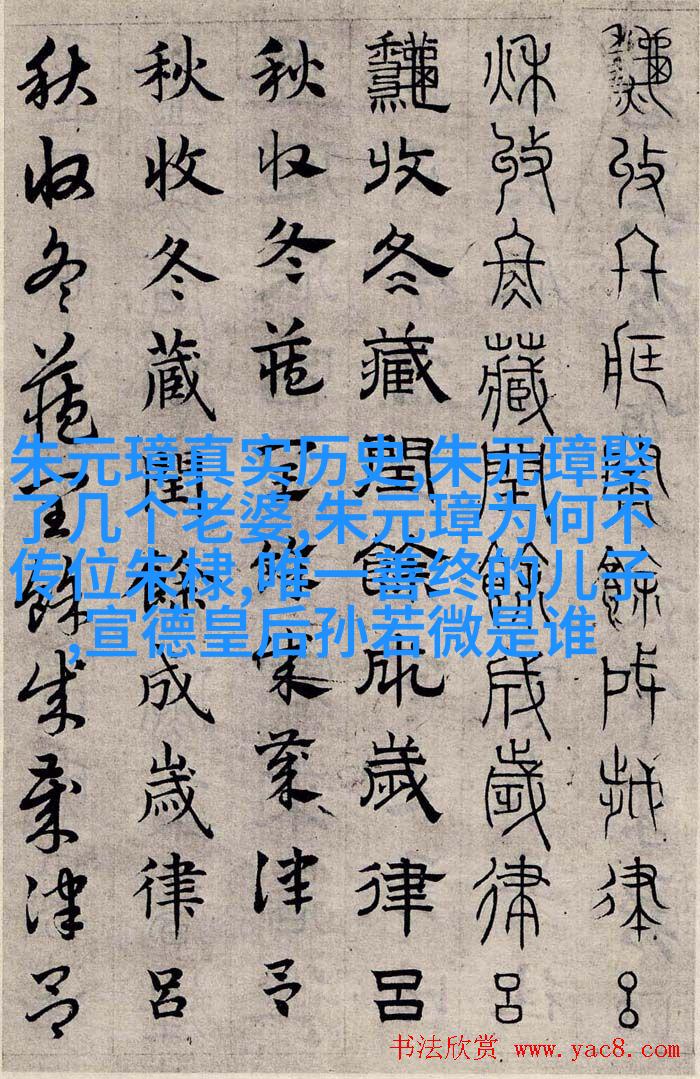 秋收冬藏閏餘成歲律呂
秋收冬藏閏餘成歲律呂
秋收冬藏閏餘成歲律呂
秋收冬藏閏餘成歲律呂
秋收冬藏閏餘成歲律呂
秋收冬藏閏餘成歲律呂
朱元璋真实历史,朱元璋娶
了几个老婆,朱元璋为何不
传位朱棣,唯一善终的儿子
,宣德皇后孙若微是谁
书法欣赏 www.yac8.com